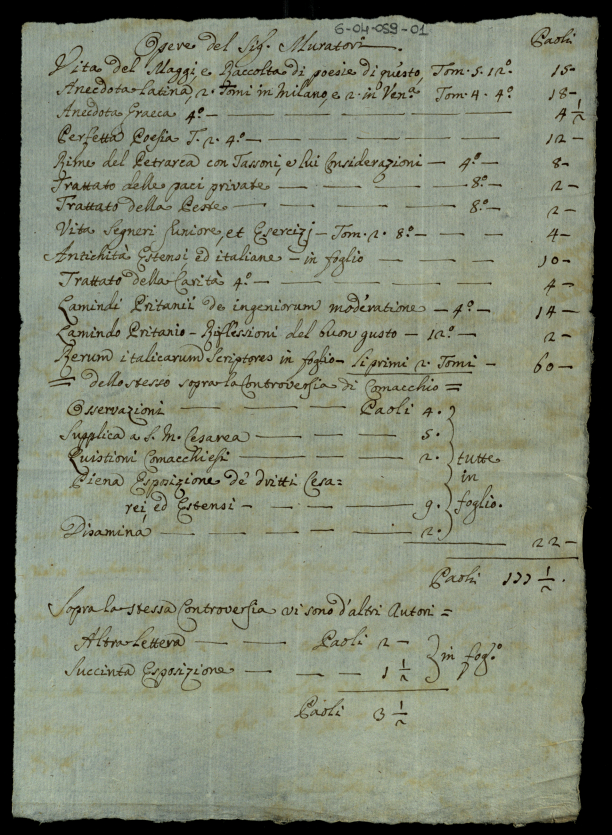 6-04-059-01
Opere del Sig. Muratori. Paoli
Vita del Maggi, e Raccolta di poesie di questo, Tom. 5. 12º. 15-
Anecdota Latina, 2. Tomi in Milano, e 2. in Venª Tom. 4. 4º 18-
Anecdota Graeca 4º — 4 1/2
Perfetta Poesia T. 2. 4º — 12-
Rime del Petrarca con Tassoni, e lui Considerazioni — 4º — 8-
Trattato delle paci private — 8º — 2-
Trattato della Peste — 8º — 2-
Vita Segneri Juniore, et Esercizj — Tom. 2. 8º — 4-
Antichità Estensi ed italiane — in foglio — 10-
Trattato della Carità 4º — 4-
Lamindi Pritanii de ingeniorum moderatione — 4º — 14-
Lamindo Pritanio — Riflessioni del buon gusto — 12º — 2-
Rerum italicarum Scriptores in foglio — Li primi 2. Tomi — 60-
= dello stesso sopra la Controversia di Comacchio =
Osservazioni — Paoli 4.
Supplica a S. M. Cesarea — 5.
Quistioni Comacchiesi — 2. tutte
Piena Esposizione de' dritti Cesa= in
rei ed Estensi — 9. foglio.
Disamina — 2.
22-
Paoli 177 1/2.
Sopra la stessa Controversia vi sono d'altri Autori =
Altra Lettera — Paoli 2 —
Succinta Esposizione — 1 1/2 in fogº
Paoli 3 1/2